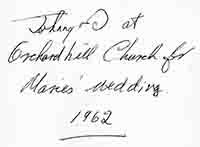 Johnny & D at
Orchard hill Church for
Maries' wedding
1962